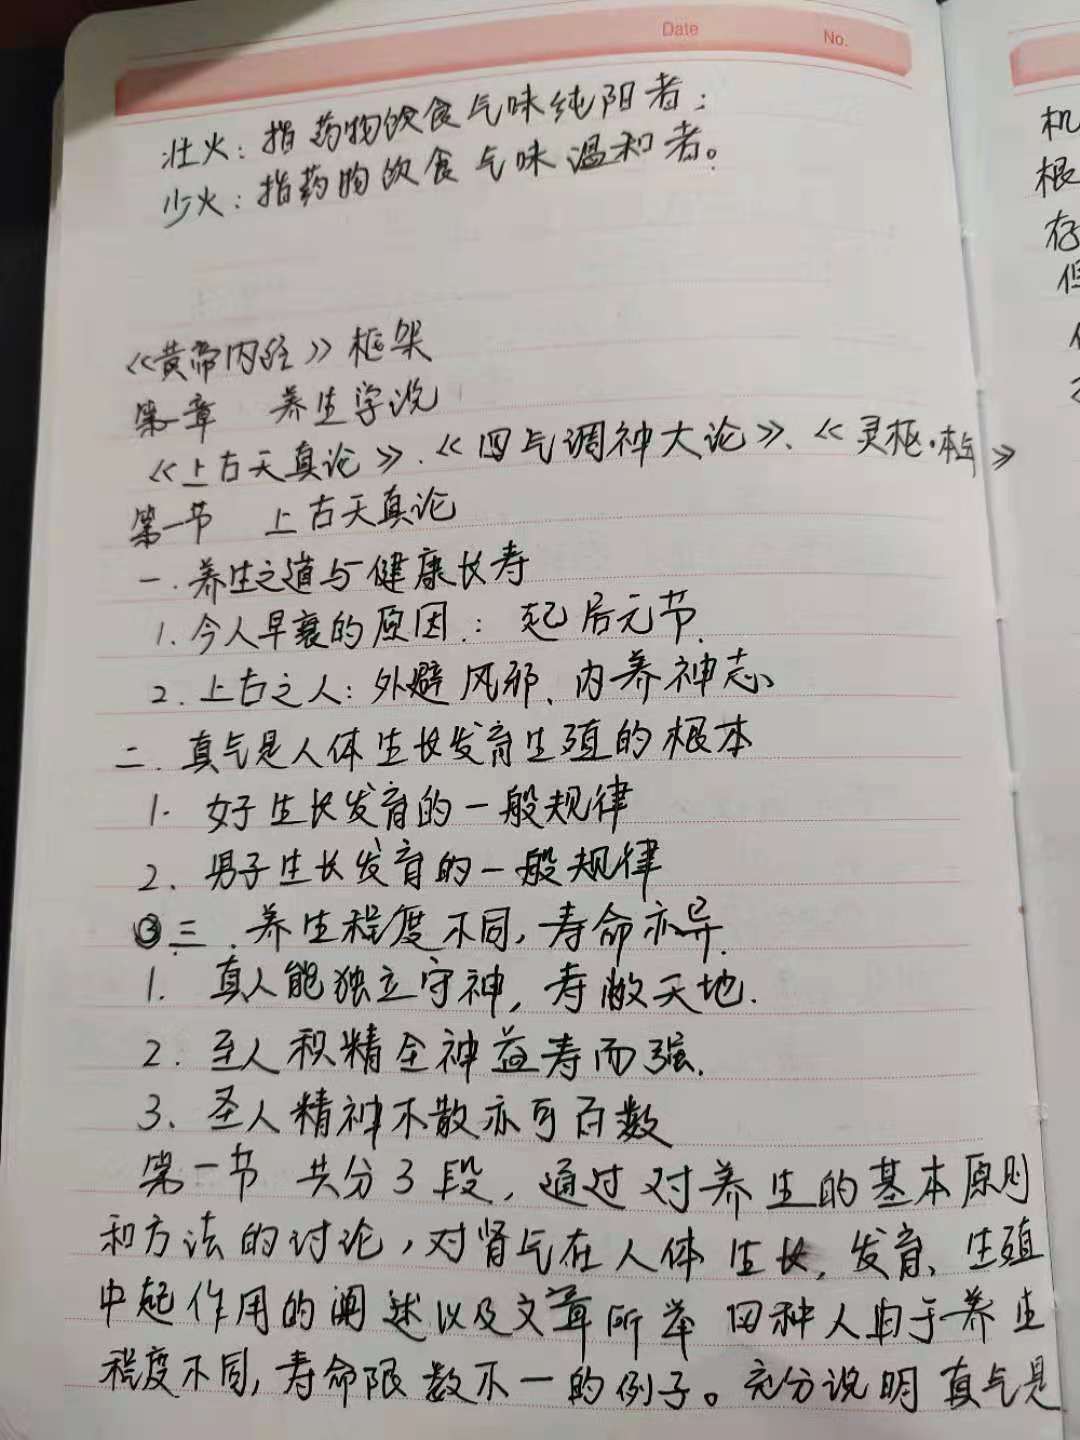 Date
No.
壮火：指药物饮食气味纯阳者；
少火：指药物饮食气味温和者。
《黄帝内经》框架
第一章 养生学说
《上古天真论》、《四气调神大论》、《灵枢·本》
第一节 上古天真论
一.养生之道与健康长寿
1.今人早衰的原因：起居无节.
2.上古之人：外避风邪、内养神志、
二.真气是人体生长发育生殖的根本
1.女子生长发育的一般规律
2.男子生长发育的一般规律
③三.养生程度不同,寿命亦异.
1.真人能独立守神,寿敝天地.
2.至人积精全神益寿而强.
3、圣人精神不散亦可百数
第一节 共分3段,通过对养生的基本原则
和方法的讨论,对肾气在人体生长,发育、生殖
中起作用的阐述以及文章所举四种人由于养生
程度不同,寿命限数不一的例子。充分说明真气是
机
根
存
但